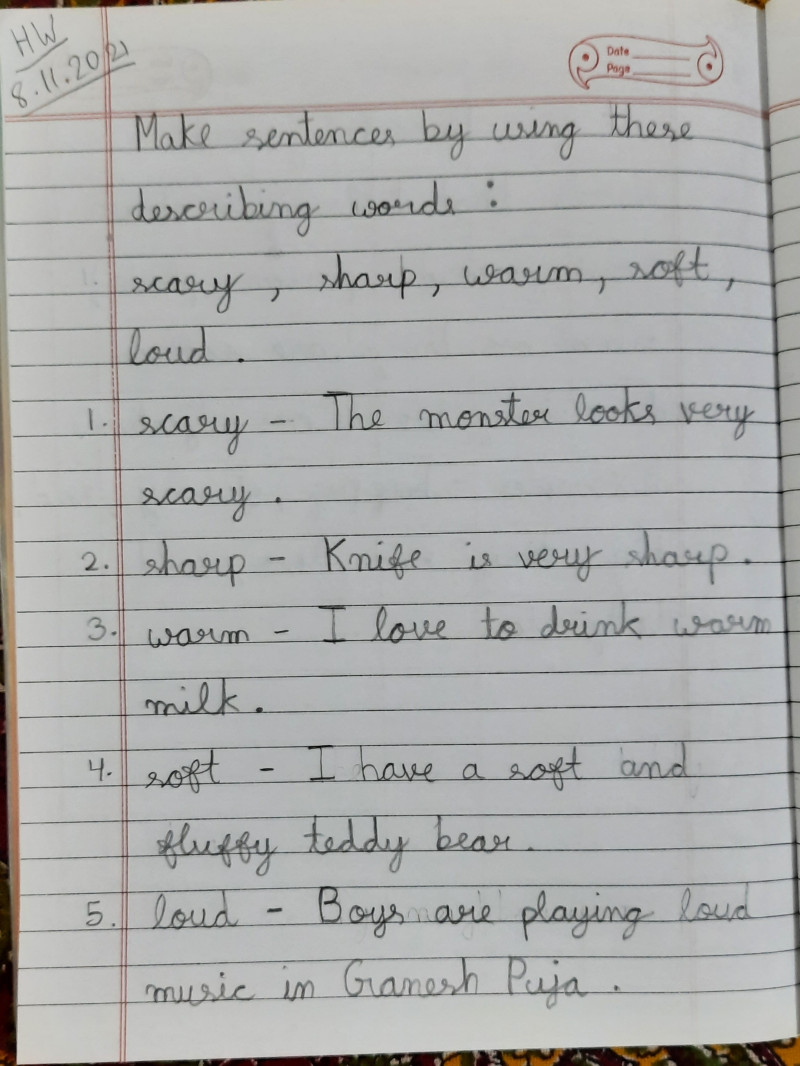 HW
8.11.2021
Date
Page
Make sentences by using these
describing words :
scary , sharp, warm, soft,
loud .
1. scary - The monster looks very
scary .
2. sharp - Knife is very sharp.
3. warm - I love to drink warm
milk.
4. soft - I have a soft and
fluffy teddy bear.
5. loud - Boys are playing loud
music in Ganesh Puja .